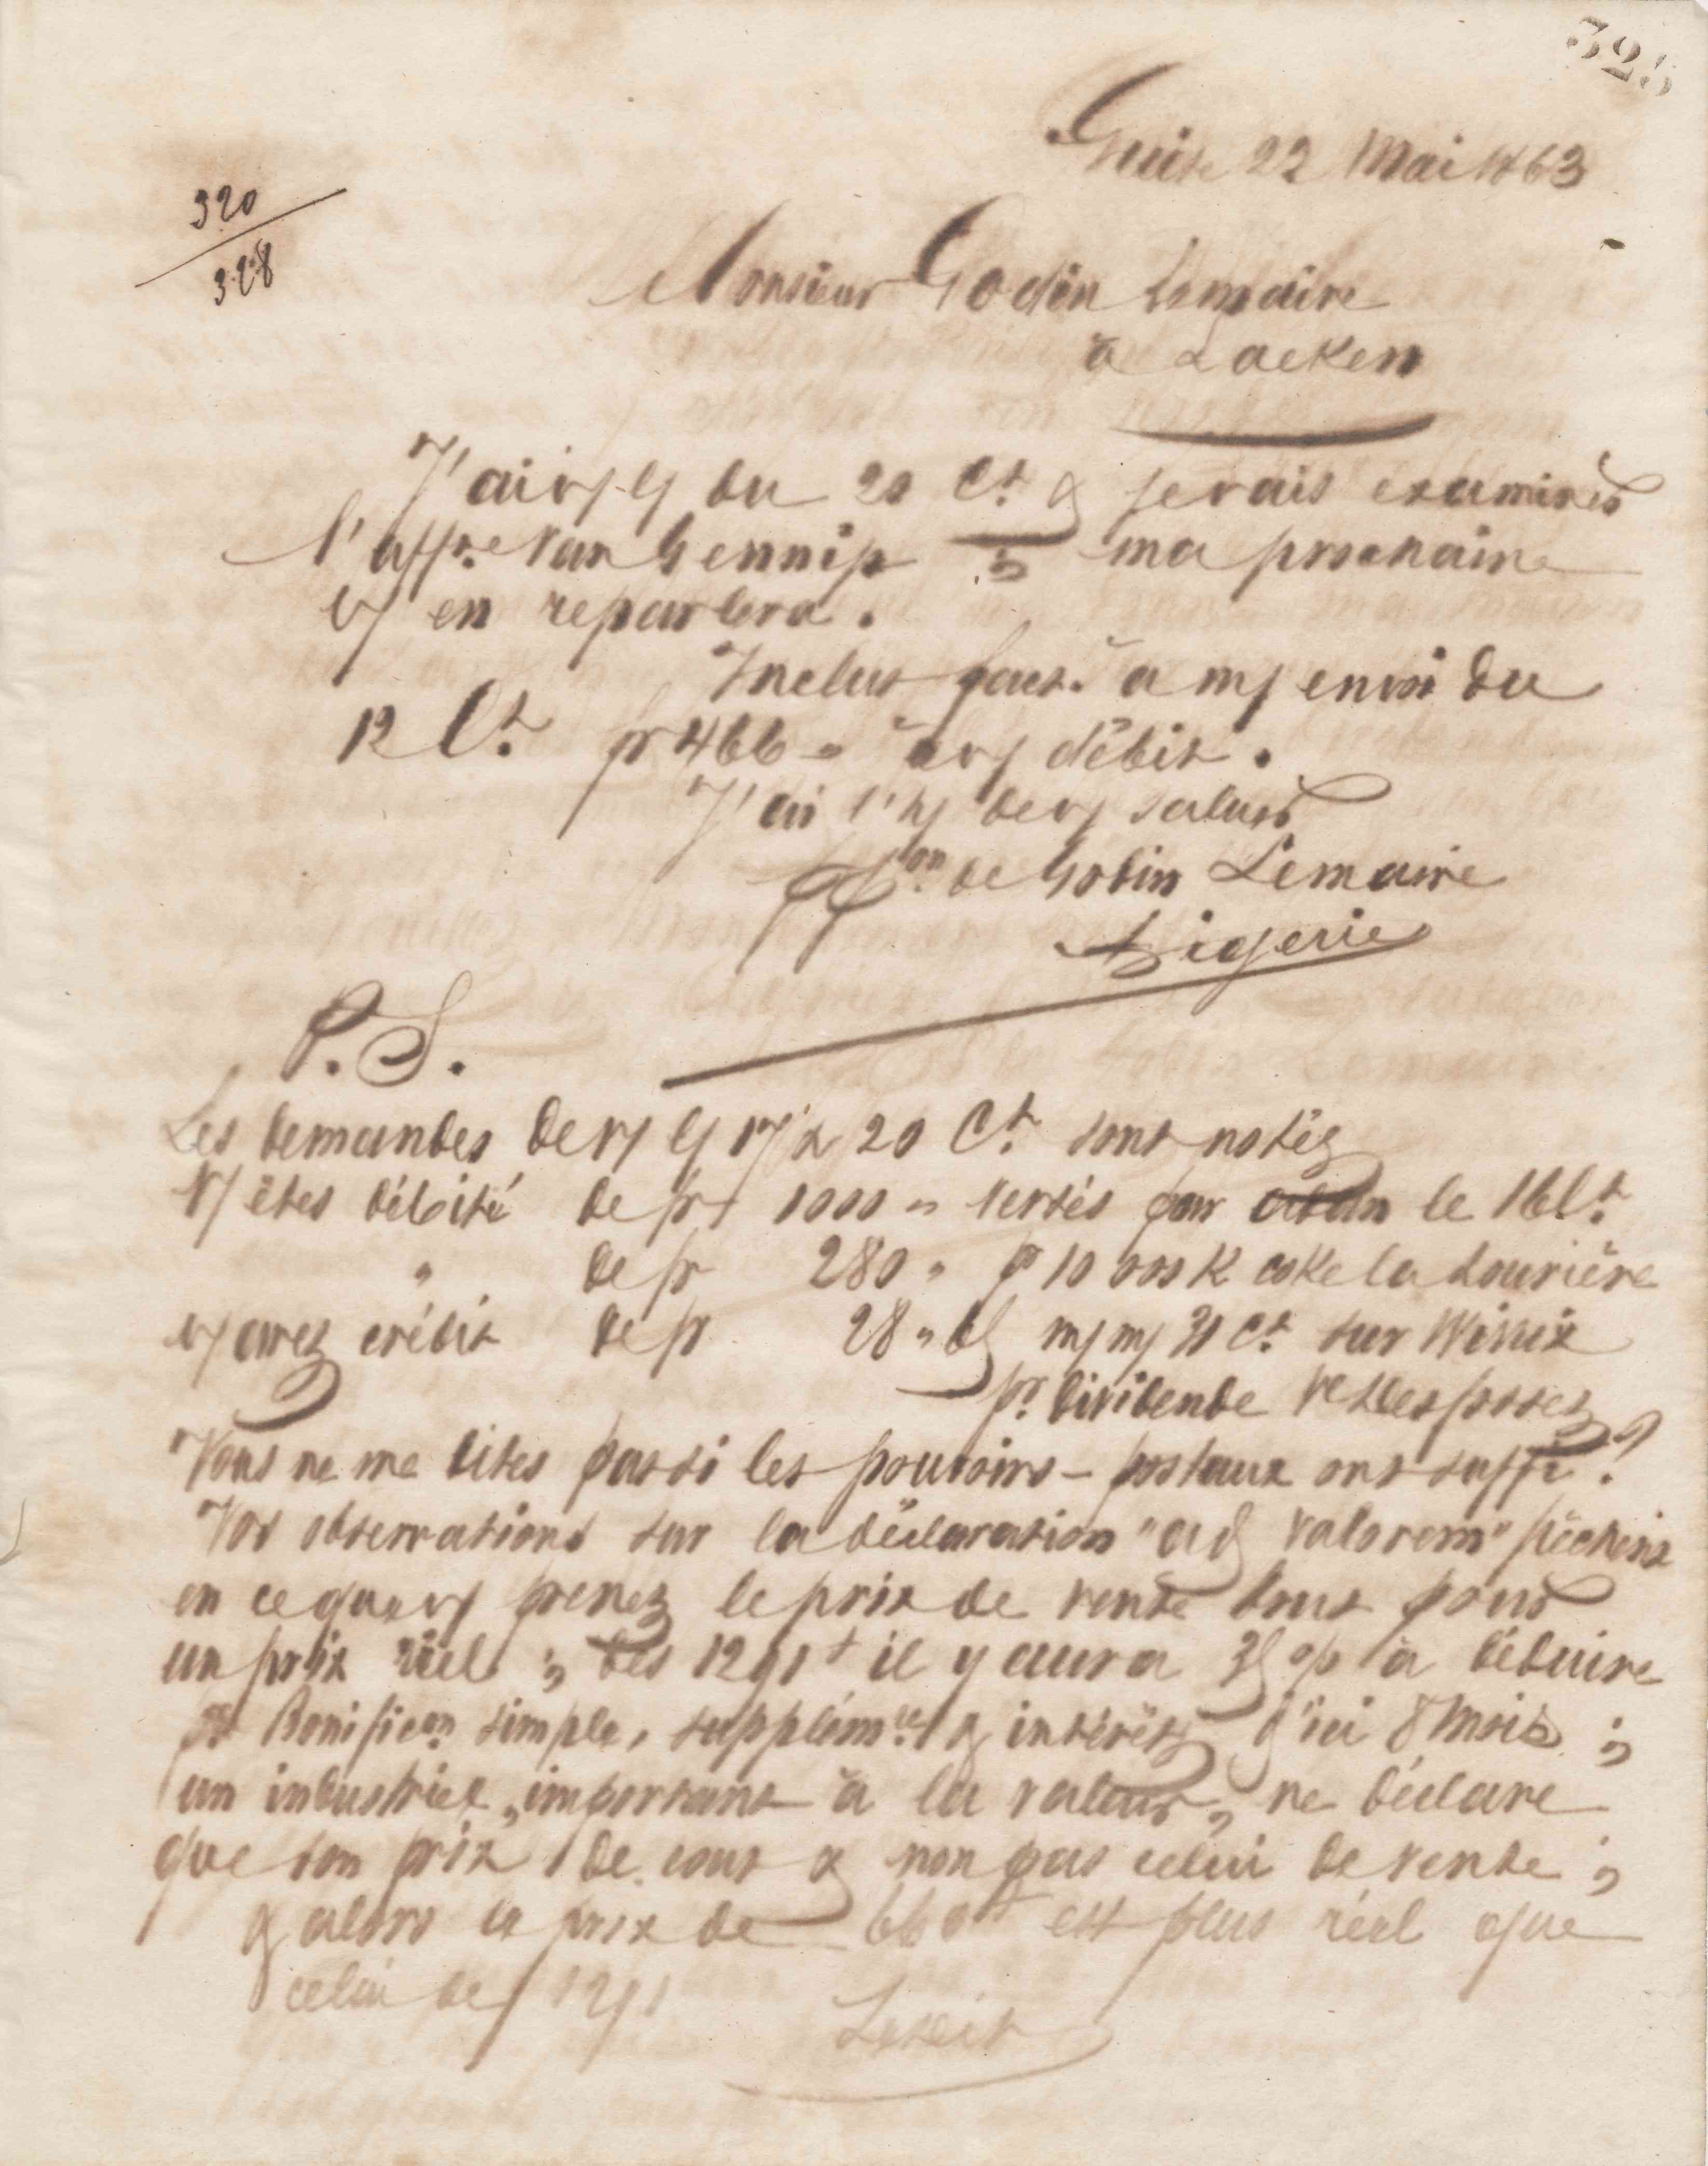 325
Guise 22 Mai 1863
320
328
Monsieur Godin Lemaire
à Laeken
J'ai v/ l/ du 20 Ct & je vais examiner
l'affre Van Gennip ; ma prochaine
v/ en reparlera.
Inclus fact. à m/ envoi du
12 Ct. fr 466 " à v/ débit.
J'ai l'h/ de v/ saluer
pp on de Godin Lemaire
P. S.
Les demandes de v/ l/ 20 Ct. sont notées
V/ êtes débité de fr 1000 " versés par le 16 Ct.
" de fr 280 " p 10 000 K coke la Louvière
v/ avez crédit de fr 28 " m/ m/ 21 Ct. sur
pr. dividende
Vous ne me dites pas si les pouvoirs - postaux ont suffi ?
Vos observations sur la déclaration "ad valorem" pèchent
en ce que v/ prenez le prix de vente brut pour
un prix réel ; des 1291 t il y aura à déduire
pr Bonificon simple, supplémre & intérêts d'ici 8 Mois ;
un industriel, important à la valeur, ne déclare
que son prix de cout & non pas celui de vente ;
& alors le prix de 660 est plus réel que
celui de 1291